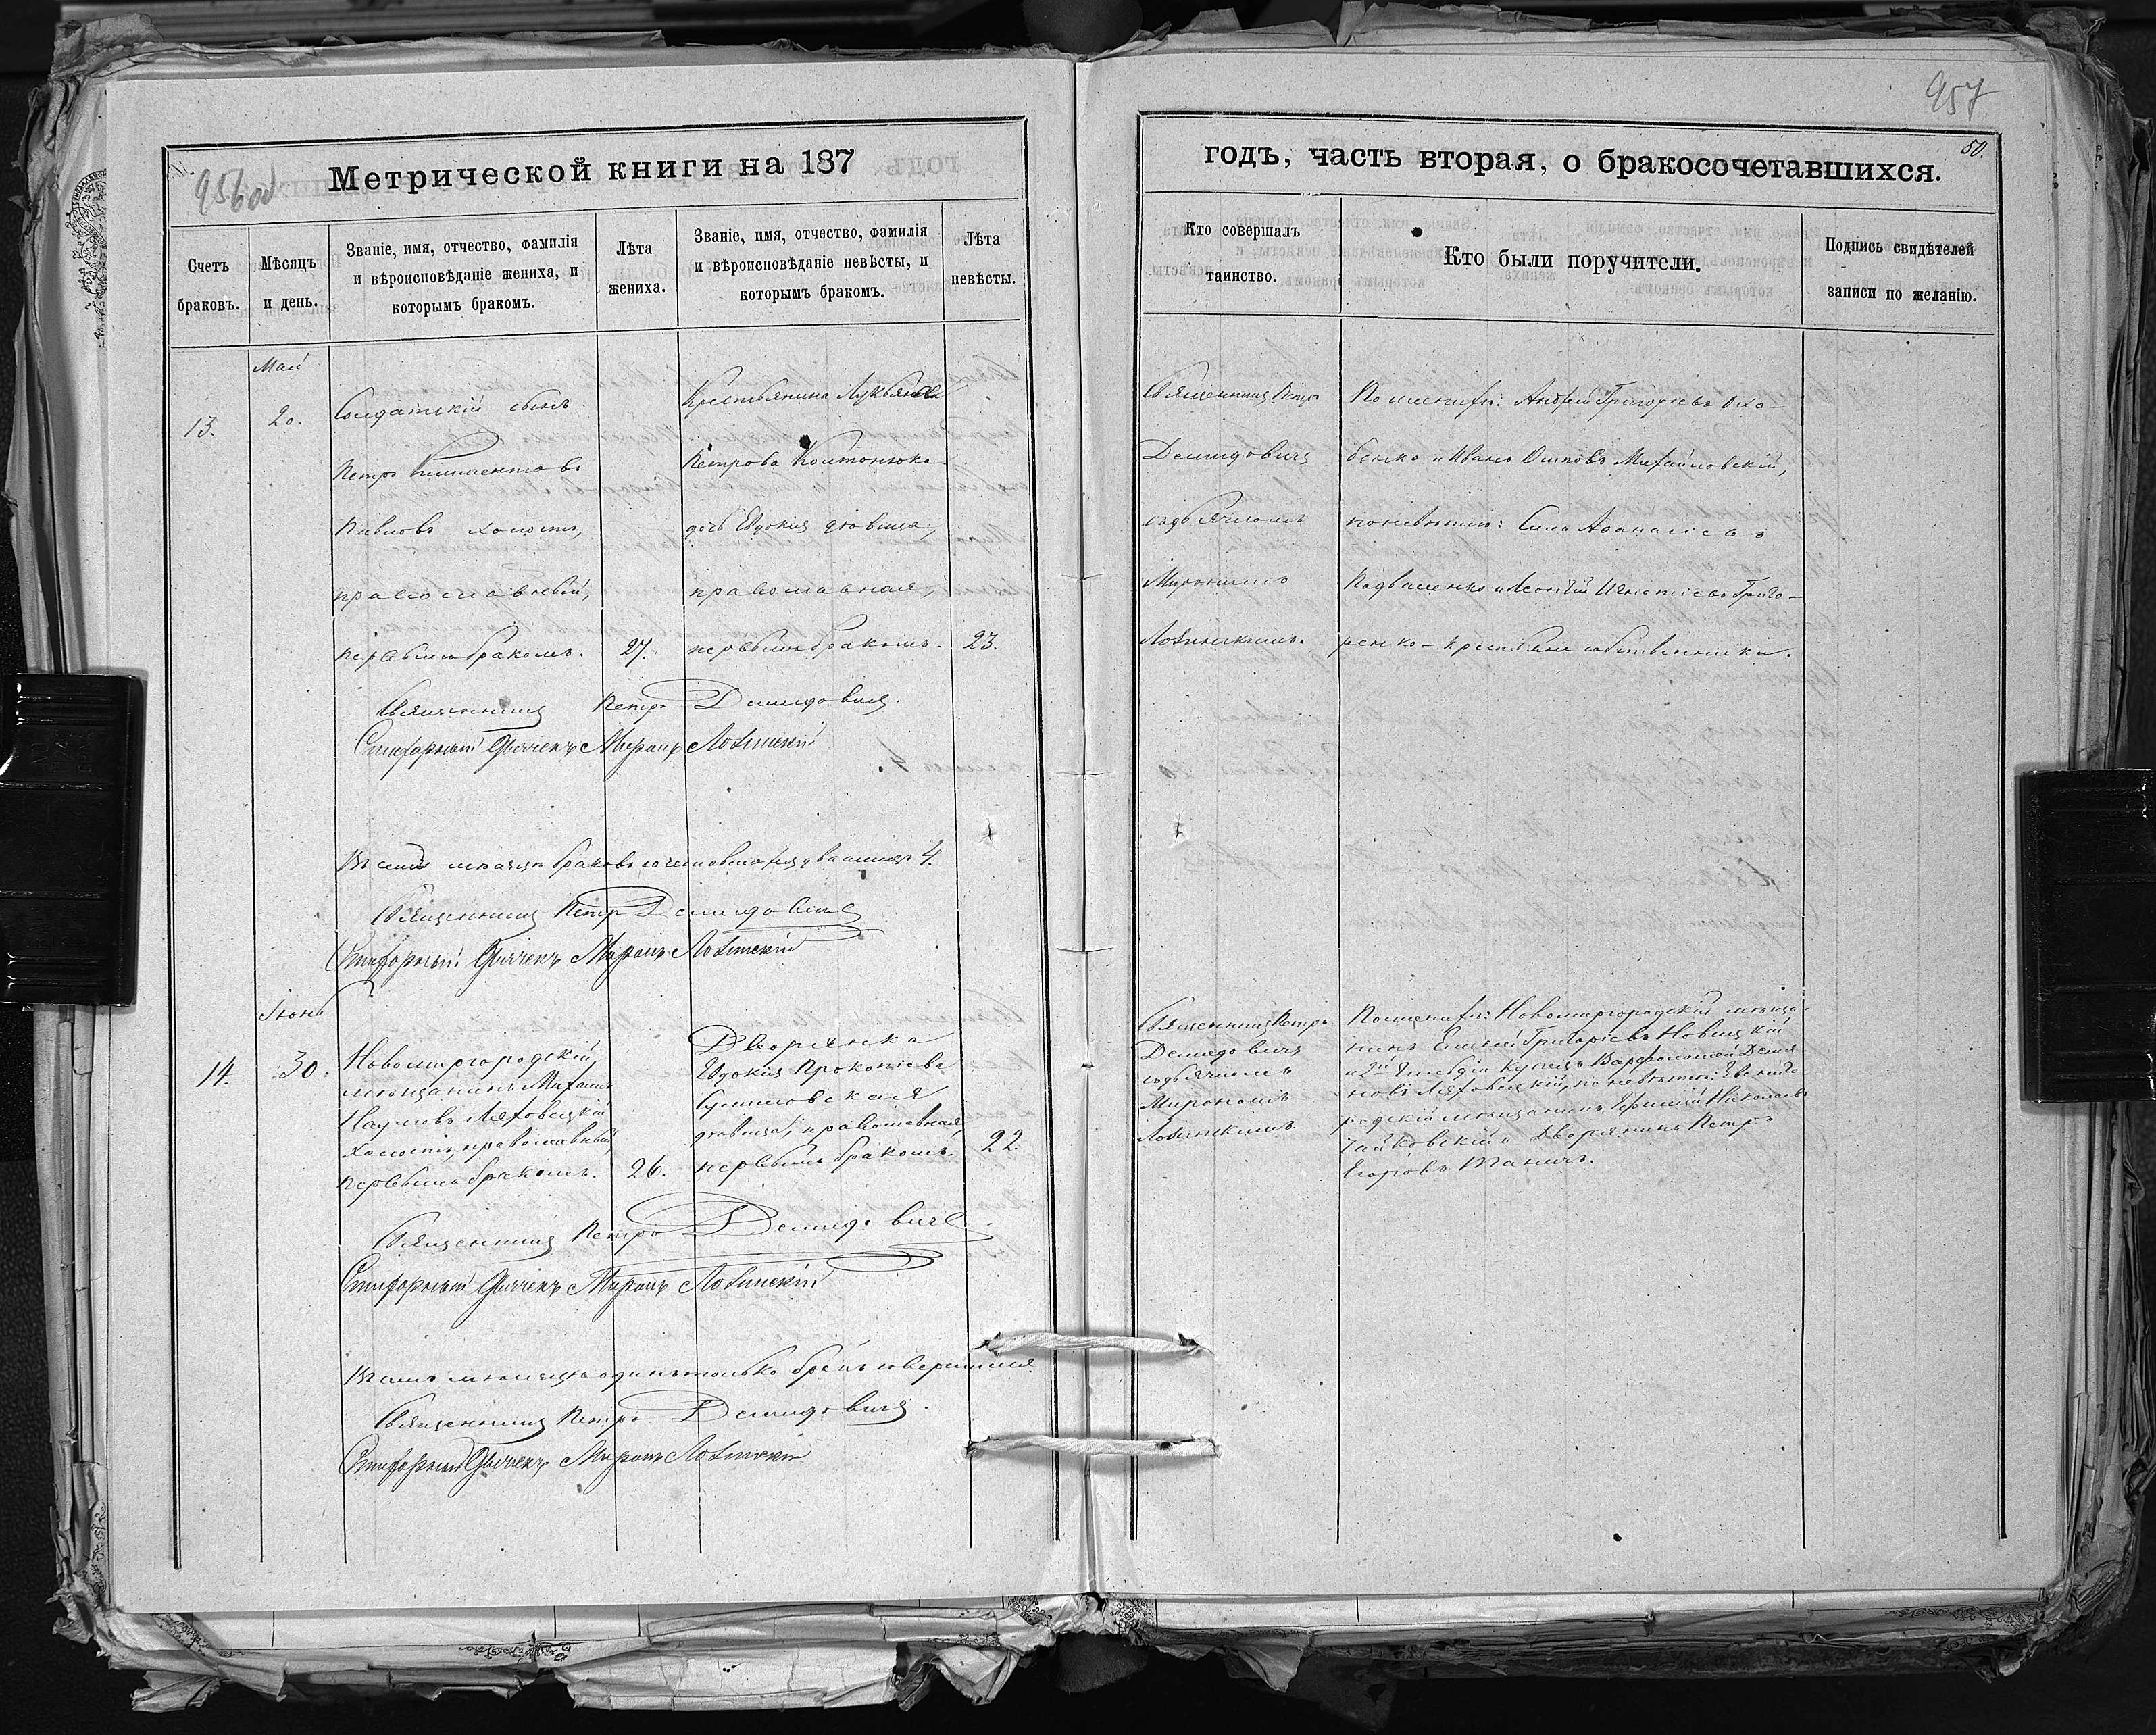 957
956 об
50.
Метрической книги на 187
годъ, часть вторая, о бракосочетавшихся.
Счетъ браковъ.
Мѣсяцъ и день.
Званіе, имя, отчество, фамилія и вѣроисповѣданіе жениха, и которымъ бракомъ.
Лѣта жениха.
Званіе, имя, отчество, фамилія и вѣроисповѣданіе невѣсты, и которымъ бракомъ.
Лѣта невѣсты.
Кто совершалъ таинство.
Кто были поручители.
Подпись свидѣтелей записи по желанію.
Май
13.
20.
Солдатскій сынъ
Петръ
Павловъ холостъ,
православный,
первымъ бракомъ.
27.
Крестьянина Лукьяна
Петрова
дочь Евдокія дѣвица,
православная,
первымъ бракомъ.
23.
Священникъ Петръ
Демидовичъ
съ дьячкомъ
Мирономъ
Ловинскимъ.
По женихѣ: Андрей Григорьевъ Охо-
бенко и Иванъ Осиповъ Михайловскій,
по невѣстѣ: Сила Аѳанасіевъ
и Леонтій Игнатіевъ Григо-
ренко - крестьяне собственники.
Священникъ Петръ Демидовичъ.
Стихарный Дьячекъ Миронъ Ловинскій
Въ семъ мѣсяцѣ браковъ 4.
Священникъ Петръ Демидовичъ
Стихарный Дьячекъ Миронъ Ловинскій
Іюнь
14.
30.
Новомиргородскій
мѣщанинъ Михаилъ
Наумовъ Ляховецкій
холостъ, православный
первымъ бракомъ.
26.
Дворянка
Евдокія Прокопіева
дѣвица, православная,
первымъ бракомъ.
22.
Священникъ Петръ
Демидовичъ
съ дьячкомъ
Мирономъ
Ловинскимъ
По женихѣ: Новомиргородскій мѣща-
нинъ Григоріевъ Новицкій
и 2й Гильдіи Купецъ Варфоломей
Ляховецкій, по невѣстѣ:
мѣщанинъ Ефимій Николаевъ
Чайковскій и Дворянинъ Петръ
Егоровъ
Священникъ Петръ Демидовичъ
Стихарный Дьячекъ Миронъ Ловинскій
Въ семъ мѣсяцѣ одинъ только бракъ совершился
Священникъ Петръ Демидовичъ.
Стихарный Дьячекъ Миронъ Ловинскій